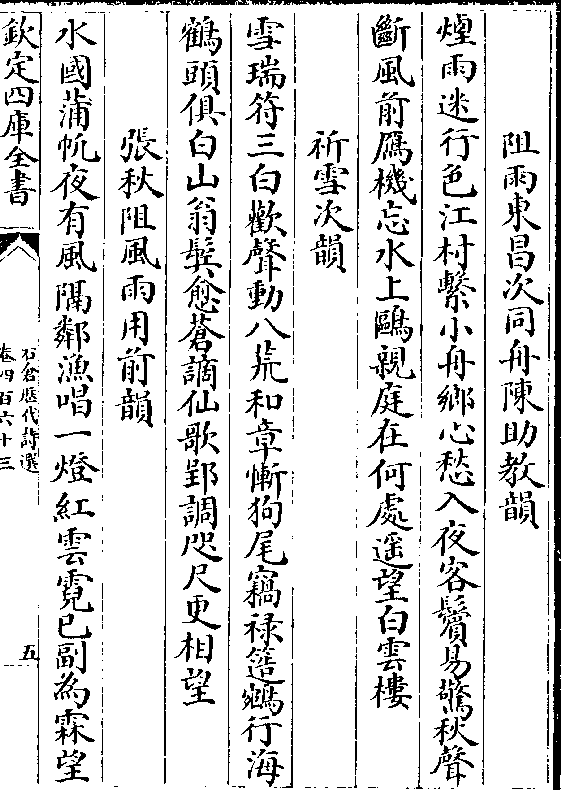 阻雨東昌次同舟陳助教韻
煙雨迷行色江村繫小舟鄉心愁入夜客鬢易驚秋聲
斷風前鴈機忘水上鷗親庭在何處遥望白雲樓
祈雪次韻
雪瑞符三白歡聲動八荒和章慚狗尾竊禄簉鵷行海
鶴頭俱白山翁鬂愈蒼謫仙歌郢調咫尺更相望
張秋阻風雨用前韻
水國蒲帆夜有風隅鄰漁唱一燈紅雲霓已副為霖望
欽定四庫全書
石倉歷代詩選
卷四百六十三
五